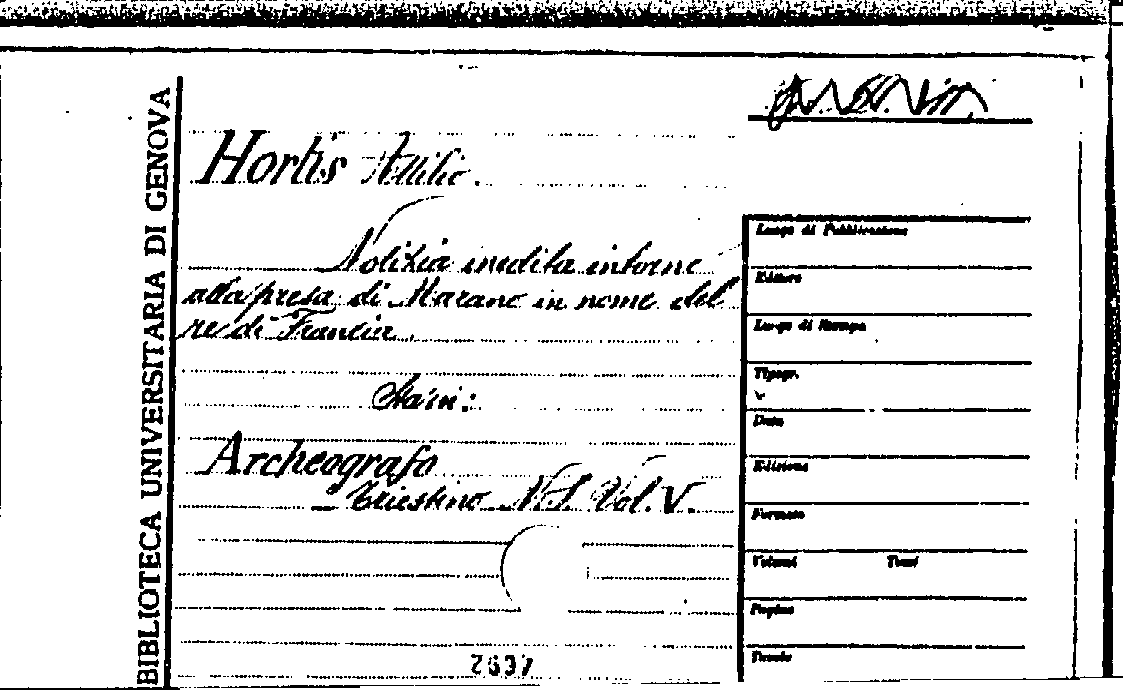 BIBLIOTECA UNIVERSITARIA DI GENOVA
Hortis Attilio.
Notizia inedita intorno
alla presa di Marano in nome del
re di Francia.
Sta in:
Archeografo
Triestino N.S. Vol. V.
Luogo di Pubblicazione
Editore
Luogo di Stampa
Tipogr.
Data
Edizione
Formato
Volumi Tomi
Pagine
Tavole